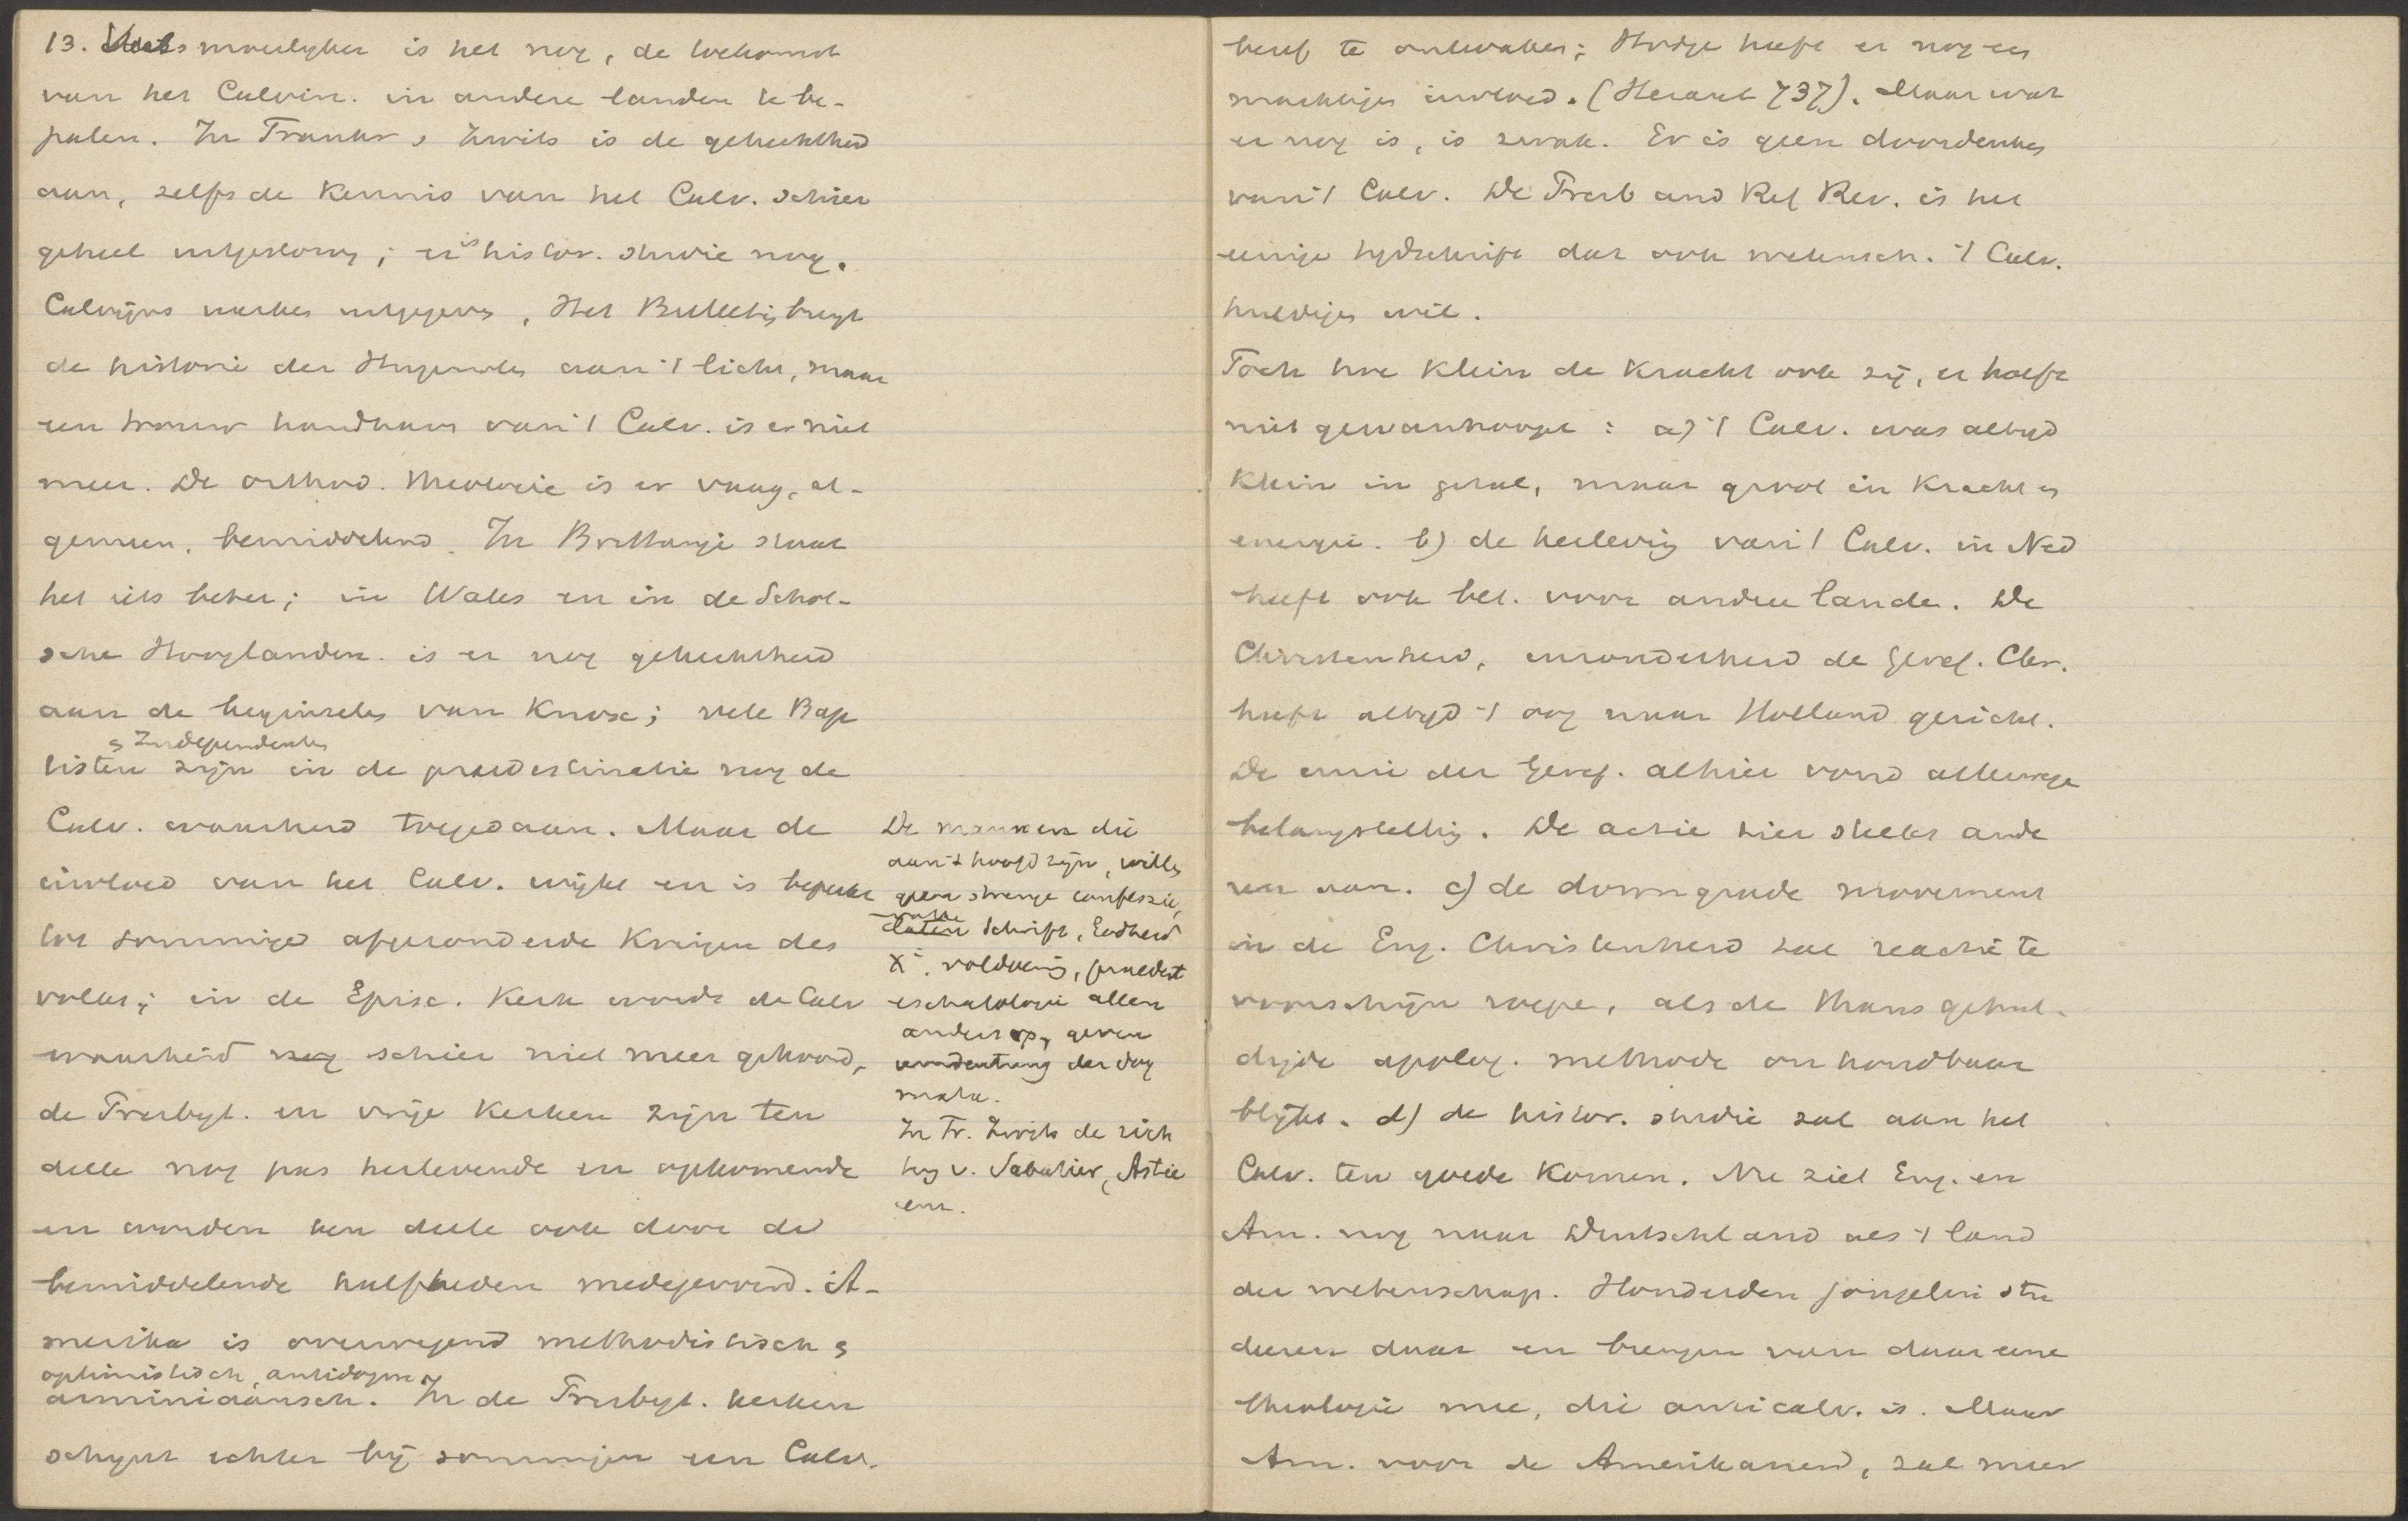 13. moeilyker is het nog, de toekomst
van het Calvin. in andere landen te be-
palen. In Frankr. & Zwits is de gehechtheid
aan, zelfs de kennis van het Calv. schier
geheel uitgestorven; er is histor. studie nog.
Calvijns werken uitgegeven, Het Bulletin brengt
de historie der Hugenoten aan 't licht, maar
een trouw handhaver van 't Calv. is er niet
meer. De orthod. theologie is er vaag, al-
gemeen, bemiddelend. In Brittanje staat
het iets beter; in Wales en in de Schot-
sche Hooglanden is er nog gehechtheid
aan de beginselen van Knox; vele Bap
& Independenten
tisten zijn in de praedestinatie nog de
Calv. waarheid toegedaan. Maar de
invloed van het Calv. wijkt en is beperkt
tot sommige afgezonderde kringen des
volks; in de Episc. Kerk wordt de Calv
waarheid nog schier niet meer gehoord,
de Presbyt. en vrije kerken zijn ten
deele nog pas herlevende en opkomende
en worden ten deele ook door de
bemiddelende halfheden medegevoerd. A-
merika is overwegend methodistisch &
optimistisch, antidogm.
arminiaansch. In de Presbyt. kerken
schynt echter bij sommigen een Calv.
De mannen die
aan 't hoofd zijn, willen
geen strenge confessie,
laten Schrift, Godheid
Xi, voldoening, praedest
eschatologie allen
anders op, geven
umdeutung der dog
mata.
In Fr. Zwits de rich
ting v. Sabatier, Astié
enz.
besef te ontwaken; Hodge heeft er nog een
machtigen invloed. (Heraut 737). Maar wat
er nog is, is zwak. Er is geen doordenken
van 't Calv. De Presb and Ref Rev. is het
eenige tydschrift dat ook wetensch. 't Calv.
huldigen wil.
Toch hoe klein de kracht ook zij, er hoeft
niet gewanhoopt: a) 't Calv. was altyd
klein in getal, maar groot in kracht en
energie. b) de herleving van 't Calv. in Ned
heeft ook bet. voor andere landen. De
Christenheid, inzonderheid de Geref. Chr.
heeft altyd 't oog naar Holland gericht.
De unie der Geref. alhier vond allerwege
belangstelling. De actie hier steekt ande
ren aan. c) de downgrade movement
in de Eng. Christenheid zal reactie te
voorschijn roepen, als de thans gehul-
digde apolog. methode onhoudbaar
blijkt. d) de histor. studie zal aan het
Calv. ten goede komen. Nu ziet Eng. en
Am. nog naar Duitschland als 't land
der wetenschap. Honderden jongelui stu
deeren daar en brengen van daar eene
theologie mee, die anticalv. is. Maar
Am. voor de Amerikanen, zal meer